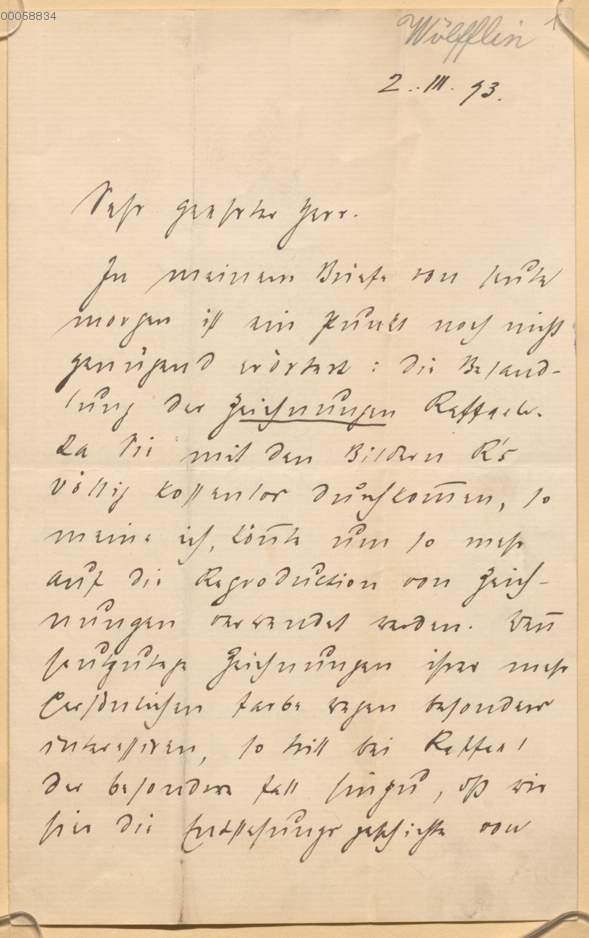 00058834
Wölfflin 1
2. III. 93.
Sehr geehrter Herr.
In meinem Briefe von heute
morgen ist ein Punkt noch nicht
genügend erörtert: die Behand-
lung der Zeichnungen Raffaels.
Da Sie mit den Bildern R's
völlig kostenlos durchkom̄en, so
meine ich, kön̄te um so mehr
auf die Reproduction von Zeich-
nungen verwendet werden. Wen̄
heutzutage Zeichnungen ihrer mehr
persönlichen Farbe wegen besonders
interessiren, so tritt bei Raffael
der besondere Fall hinzu, dß wir
hier die Entstehungsgeschichte von